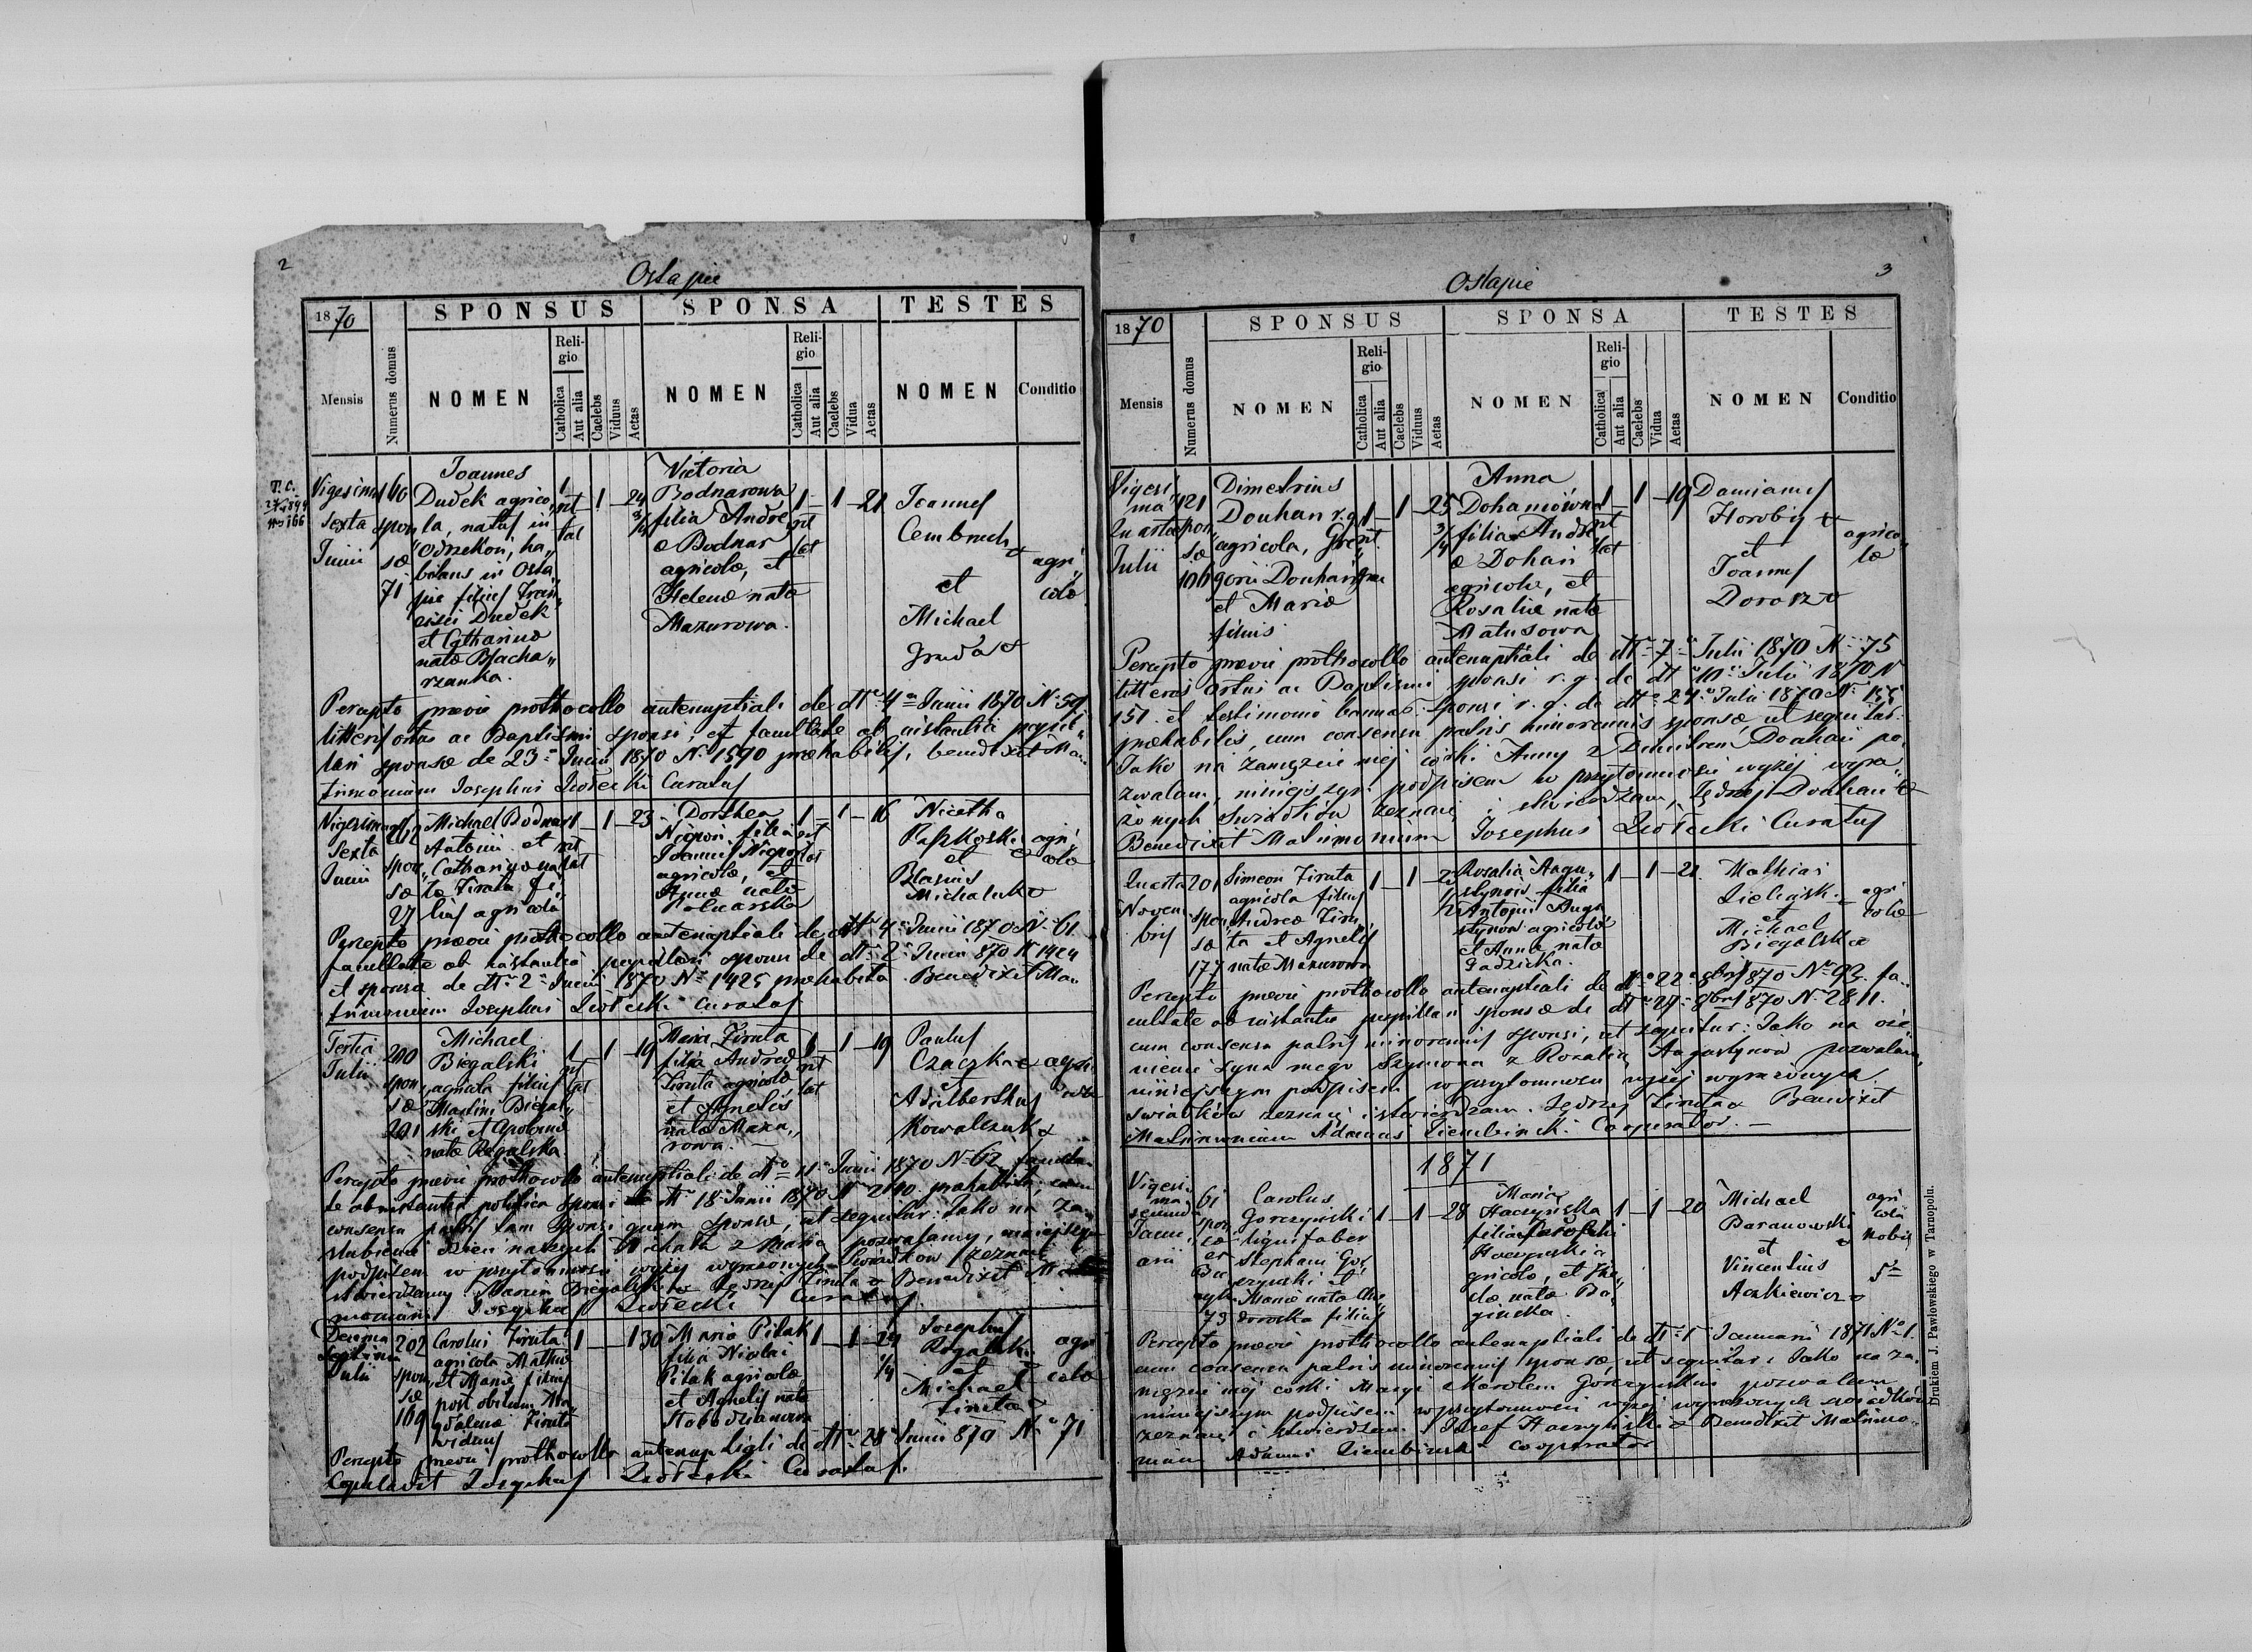 2
Ostapie
1870
SPONSUS
SPONSA
TESTES
Mensis
Numerus domus
NOMEN
Religio
Catholica
Aut alia
Caelebs
Viduus
Aetas
NOMEN
Religio
Catholica
Aut alia
Caelebs
Vidua
Aetas
NOMEN
Conditio
Vigesima
Sexta
Junii
60
spon„
sæ
71
Joannes
Dudek agrico„
la, natus in
Odrzekoń, ha„
bitans in Osta„
pie filius Fran„
cisci Dudek
et Catharinæ
natæ
1
rit
lat
1
24
3/4
Victoria
Bodnarowa
filia Andre„
æ Bodnar
agricolæ, et
Helenæ natæ
Mazurowa.
1
rit
lat
1
21
Joannes
Cembruch +
et
Michael
Gruda +
agri„
colæ
Peracto prævie prothocollo antenuptiali de dtº 4ª Junii 1870 Nº 59
litteris ortus ac Baptismi sponsi, et facultate ab instantia pupil„
lari sponsæ de 23ª Junii 1870 Nº 1590 præhabitis, benedixit Ma„
trimonium Josephus Curatus
Vigesima
Sexta
Junii
spon„
sæ
27
Michael Bodnar
Antonii et
Catharinæ na„
tæ Ziruta fi„
lius agricola
1
rit
lat
1
23
Dorothea
filia
Joannis
agricolæ, et
Annæ natæ
1
rit
lat
1
16
Nicetha
et
Blasius
Michaluk +
agri„
colæ
Peracto prævie prothocollo antenuptiali de dtº 4ª Junii 1870 Nº 61
facultate ab instantia pupillari sponsi de dtº 2ª Junii 870 N 1424
et sponsæ de dtº 2ª Junii 1870 Nº 1425 præhabita Benedixit Ma„
trimonium Josephus Curatus
Tertia
Julii
200
spon„
sæ
201
Michael
Biegalski
agricola filius
Martini Biegal„
ski et Apoloniæ
natæ Rogalska
1
rit
lat
1
19
Maria Ziruta
filia Andreæ
Ziruta agricolæ
et Agnetis
natæ Mazu„
rowa.
1
rit
lat
1
19
Paulus
Czaczka +
et
Adalbertus
Kowalczuk +
agri„
colæ
Peracto prævie prothocollo antenuptiali de dtº Junii 1870 Nº 62 faculta„
te ab instantia politica sponsi dtº 18 Junii 1870 Nº præhabita, cum
consensu patris tam sponsi quam sponsæ, ut sequitur: Jako na za„
ślubienie dzieci naszych Michała z Maryą pozwalamy, niniejszym
podpisem w przytomności wyżej wyrażonych świadków zeznani
stwierdzamy Marcin Biegalski + Jędrzej Ziruta + Benedixit Ma„
trimonium Josephus Curatus
Decima
Septima
Julii
202
spon„
sæ
169
Carolus Ziruta
agricola Mathiæ
et Mariæ filius
post obitum Ma„
gdalenæ Ziruta
viduus
1
1
30
Maria Pitak
filia Nicolai
Pitak agricolæ
et Agnetis natæ
1
1
24
1/4
Josephus
Rogalski
et
Michael
Ziruta +
agri„
colæ
Peracto prævie prothocollo antenuptiali de dtº 28ª Junii 870 Nº 71
Copulavit Josephus Curatus.
3
Ostapie
1870
SPONSUS
SPONSA
TESTES
Mensis
Numerus domus
NOMEN
Religio
Catholica
Aut alia
Caelebs
Viduus
Aetas
NOMEN
Religio
Catholica
Aut alia
Caelebs
Vidua
Aetas
NOMEN
Conditio
Vigesi„
ma
Quarta
Julii
121
spon„
sæ
106
Dimetrius
Douhan r. g.
agricola, Gre„
gorii Douhan
et Mariæ
filius
1
rit.
1
25
3/4
Anna
Dohaniówna
filia Andre„
æ Dohan
agricolæ, et
Rosaliæ natæ
Matusowa
1
rit
lat
1
19
Damianus
Horobij +
et
Joannes
Dorosz +
agrico„
læ
Peracto prævie prothocollo antenuptiali de dtº 7ª Julii 1870 Nº 75
litteras ortus ac Baptismi sponsi r. g. de dtº 10ª Julii 1870 N
151. et testimonio bannor. sponsi r. g. de dtº 24ª Julii 1870 Nº 155
præhabitis, cum consensu patris minorennis sponsæ, ut sequitur:
Jako na zamęzcie mej córki Anny z Dmitrem Douhan po„
zwalam, niniejszym podpisem w przytomności wyżej wyra„
żonych świadków zeznani i stwierdzam, Jędrzej Douhan +
Benedixit Matrimonium Josephus Curatus
Quarta
Novem„
bris
201
spon„
sæ
177
Simeon Ziruta
agricola filius
Andreæ Ziru„
ta et Agnetis
natæ Mazurowa
1
1
Rosalia Augu„
filia
Antonii Augu„
agricolæ
et Annæ natæ
Gadzicka.
1
1
21
Mathias
Zieliński
et
Michael
Biegalski +
agri„
colæ
Peracto prævie prothocollo antenuptiali de dtº 22ª 8bris 870 Nº 92. fa„
cultate ab instantia pupillari sponsæ de dtº 8bris 870 N. 2811.
cum consensu patris minorennis sponsi, ut sequitur: Jako na oże„
nienie syna mego Szymona z Rozalią Augustynów pozwalam,
niniejszym podpisem w przytomności wyżej wyrażonych
świadków zeznani i stwierdzam. Jędrzej Ziruta + Benedixit
Matrimonium Adamus Ziembiński Cooperator.
1871
Vigesi„
ma
secunda
Janu„
arii
61
spon„
sæ
73
Carolus
Gorczyński
lignifaber
Stephani Gor„
czyński et
Mariæ natæ
filius
1
1
28
Maria
Haczyńska
filia Josephi
Haczyński a„
gricolæ, et
natæ
1
1
20
Michael
Baranowski
et
Vincentius
Aczkiewicz +
agri„
cola
nobilis
Peracto prævie prothocollo antenuptiali de dtº 1 Januarii 1871 Nº 1.
cum consensu patris minorennis sponsæ, ut sequitur: Jako na za„
męzcie mej córki Maryi z Karolem Gorczyńskim pozwalam
niniejszym podpisem w przytomności wyżej wyrażonych świadków
zeznani i stwierdzam. Józef Haczyński + Benedixit Matrimo„
nium Adamus Ziembiński Cooperator
Drukiem J. Pawłowskiego w Tarnopolu.